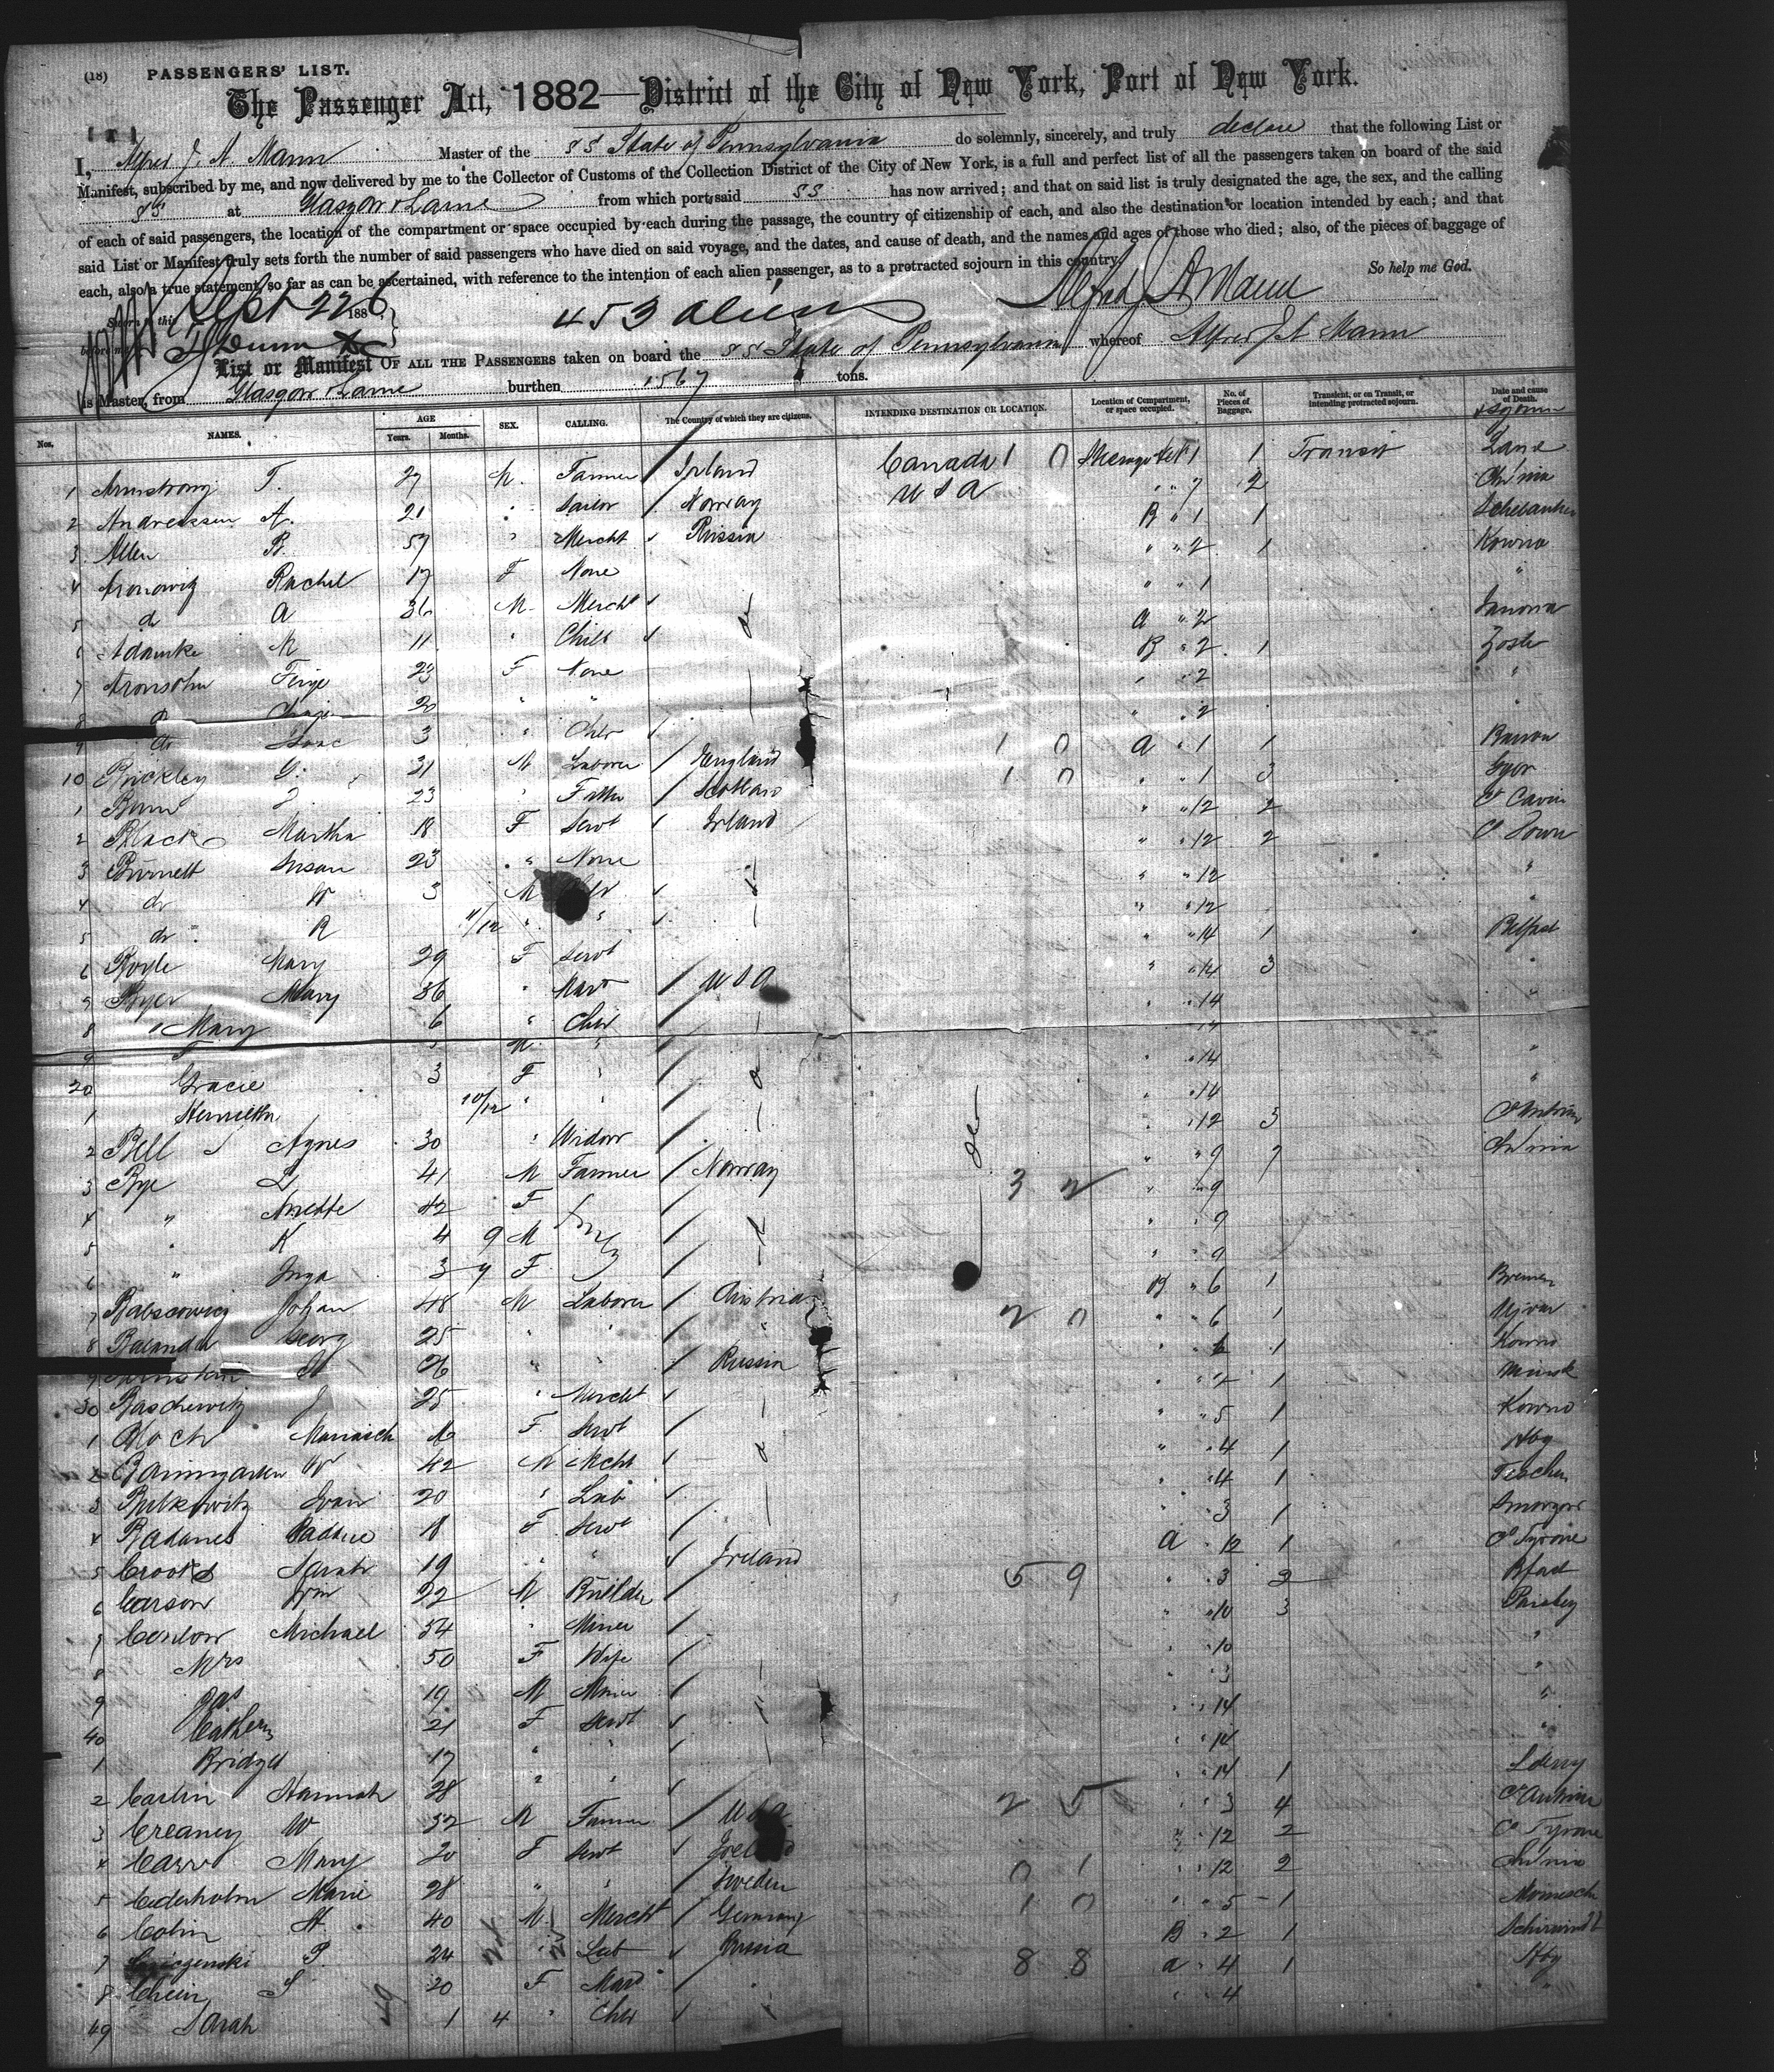 (18) PASSENGERS' LIST.
The Passenger Act, 1882—District of the City of New York, Port of New York.
I, Alfred J. A. Mann Master of the SS State of Pennsylvania do solemnly, sincerely, and truly declare that the following List or
Manifest, subscribed by me, and now delivered by me to the Collector of Customs of the Collection District of the City of New York, is a full and perfect list of all the passengers taken on board of the said
SS at Glasgow & Larne from which port said SS has now arrived; and that on said list is truly designated the age, the sex, and the calling
of each of said passengers, the location of the compartment or space occupied by each during the passage, the country of citizenship of each, and also the destination or location intended by each; and that
said List or Manifest truly sets forth the number of said passengers who have died on said voyage, and the dates, and cause of death, and the names and ages of those who died; also, of the pieces of baggage of
each, also a true statement, so far as can be ascertained, with reference to the intention of each alien passenger, as to a protracted sojourn in this country.
So help me God.
Sworn to this Sept 22 1886 453 aliens Alfred J A Mann
before me
List or Manifest OF ALL THE PASSENGERS taken on board the SS State of Pennsylvania whereof Alfred J A Mann
is Master, from Glasgow & Larne burthen 1567 tons.
Nos. NAMES. AGE Years. Months. SEX. CALLING. The Country of which they are citizens. INTENDING DESTINATION OR LOCATION. Location of Compartment, or space occupied. No. of Pieces of Baggage. Transient, or on Transit, or intending protracted sojourn. Date and cause of Death.
1 Armstrong T. 27 M. Farmer Ireland Canada 1 0 1 1 Transit
2 Andreassen A. 21 " Sailor Norway U S A " " 7 2 Ch'inia
3 Allen B. 57 " Mercht Russia B " 1 1
4 Aronowitz Rachel 17 F None " " 2 1 Kowno
5 do A 36 M Mercht " " 1 "
6 Adamke M 11 " Child a " 2
7 Aronsohn Feige 23 F None B " 2 1
8 do 20 " " " " 2 "
9 do Isaac 3 " Child " " 2 "
10 Brickley G. 31 M Laborer England 1 0 a " 1 1
1 Bunn J. 23 " Scotland 1 0 " " 1 3
2 Black Martha 18 F Servt Ireland " " 12 2
3 Burnett Susan 23 " None " " 12 2 Co Down
4 do W 3 M " " 12 "
5 do R 11/12 " " " " 12 "
6 Boyle Mary 29 F Servt " " 14 1 Belfast
7 Byer Mary 36 " Mard U S A " " 14 3 "
8 " Mary 6 " Child " " 14 "
9 F M " " 14
20 Gracie 3 F " " " 14 "
1 Henrietta 10/12 " " " " 14 "
2 Bell Agnes 30 " Widow " " 12 3 Co Antrim
3 Bye L 41 M Farmer Norway 3 2 " " 9 7 Ch'inia
4 " Anette 42 F " " 9
5 " K 4 9 M " " 9
6 " Inga 3 4 F " " 9
7 Johan 48 M Laborer Austria B " 6 1 Bremen
8 Georg 25 " " " 2 0 " " 6 1
9 26 " " Russia " " 6 1 Kowno
30 Baschewitz J 25 " Mercht " " 4 1 Minsk
1 Bloch F Servt " " 5 1 Kowno
2 Baumgarten W 42 M Mcht " " 4 1 Hbg
3 Butkowitz Ivan 20 " Lab " " 4 1 Teschen
4 Badanes 18 F Servt " " 3 1 Smorgon
5 Crooks Sarah 19 " " Ireland a " 12 1 Co Tyrone
6 Carson Wm 22 M Builder 5 9 " " 3 2 Bfast
7 Conlon Michael 54 " Miner " " 10 3 Paisley
8 Mrs 50 F Wife " 10 "
9 Jas 19 M Miner " 3 "
40 Cathern 21 F Servt " " 14 "
1 Bridget 17 " " " " 14 "
2 Carlin Hannah 28 " " " " 14 1 Lderry
3 Creaney W 52 M Farmer U S A 2 5 " " 3 4 Co Antrim
4 Carr Mary 20 F Servt Ireland " " 12 2 Co Tyrone
5 Cederholm Marie 28 " " Sweden 0 1 " " 12 2 Ch'inia
6 Cohn H. 40 M Mercht Germany 1 0 " " 5 1
7 P. 24 " Lab Russia B " 2 1 Schirwindt
8 Chein S 20 F Mard " 8 8 a " 4 1 Hbg
49 Sarah 1 4 " Child " " 4 "
49